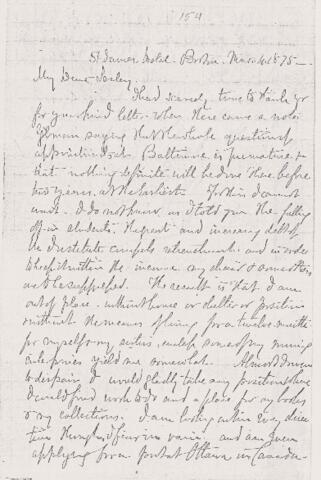 154
St James Hotel. Boston. March 4. 1875—
My Dear Lesley.
I had scarcely time to thank yr
for your kind letter when there came a note
saying that the whole question of
appointments at Baltimore is premature &
that nothing definite will be done there before
two years, at the earliest. For this I cannot
wait. I do not know, as I told you the falling
off in students the great and increasing debt of
the Institute compels retrenchment and in order
to keep it within the income my chair & some others
will be suppressed. The result is that I am
out of place, without house or shelter or position
without the means of living for a twelve month
for myself or my series, unless some of my mining
enterprises yield me somewhat. Almost driven
to despair I would gladly take any position where
I could find work to do and a place for my books
& my collections. I am looking in every direc
tion though I fear in vain, and am even
applying for a post at Ottawa in Canada—